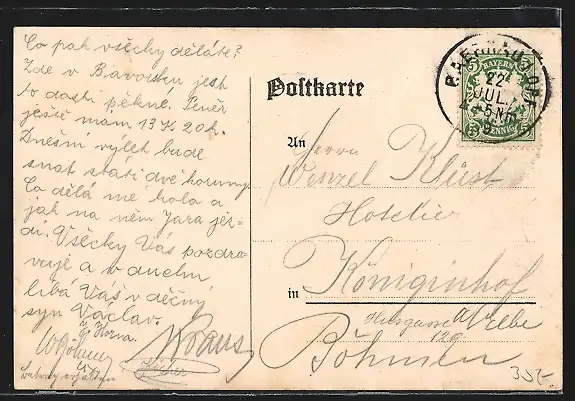 Co pak všecky děláte?
Zde v Bavorsku jest
to dosti pěkné. Peněz
ještě mám 13 K 20 h.
Dnešní výlet bude
snat státi dvě koruny
Co dělá mé kolo a
jak na něm Jara jez-
dí. Všecky Vás pozdra-
vuji a v duchu
líbá Vás vděčný
syn Václav.
Postkarte
An
Herrn
Wenzel Klust
Hotelier
in Königinhof
a/Elbe
Böhmen
BAYERN
5 PFENNIG 5
22
JUL.
Kraus